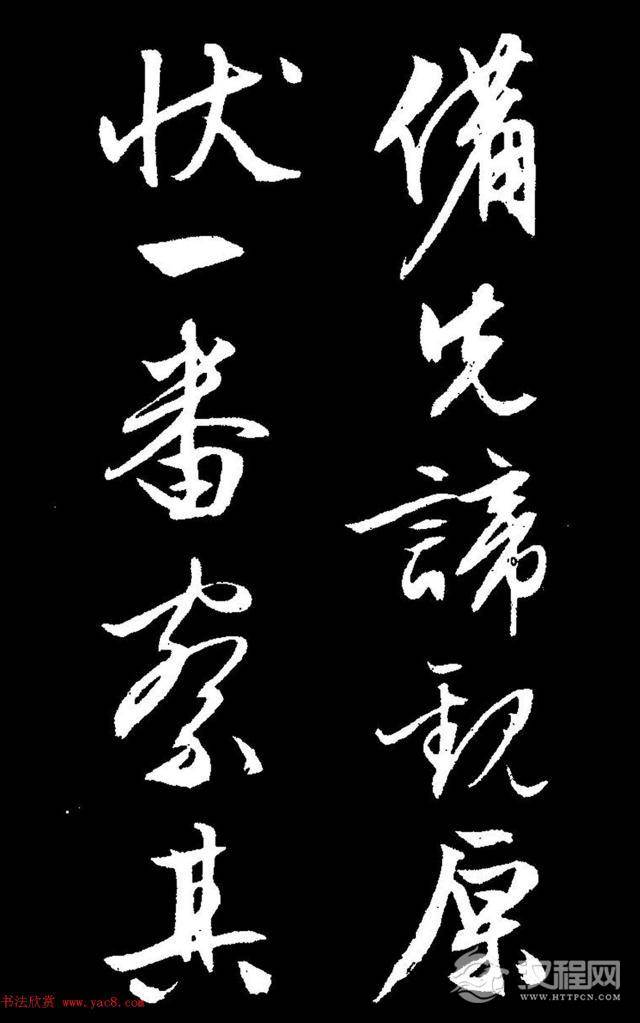 備先諦觀原
状一番察其
书法欣赏 www.yac8.com
汉程网
WWW.HTTPCN.COM